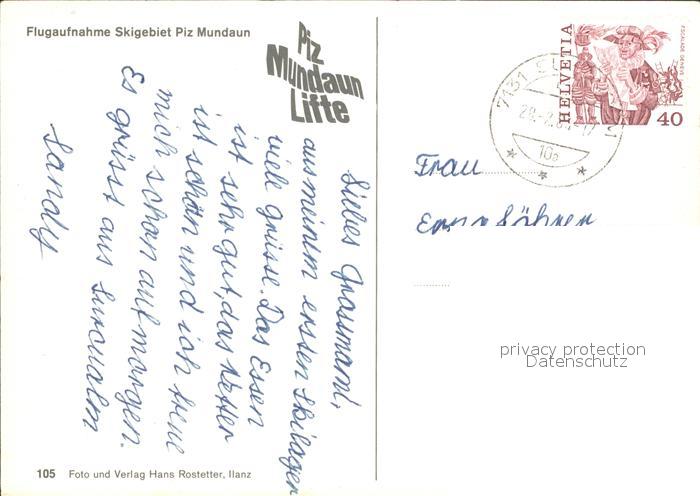 Flugaufnahme Skigebiet Piz Mundaun
Piz
Mundaun
Lifte
Liebes Grossmami,
aus meinem ersten Skilager
viele grüsse. Das Essen
ist sehr gut, das Wetter
ist schön und ich freue
mich schon auf morgen.
Es grüsst aus Surcualm
Sandy
105 Foto und Verlag Hans Rostetter, Ilanz
HELVETIA
ESCALADE GENÈVE
40
7131
10a
Frau
privacy protection
Datenschutz